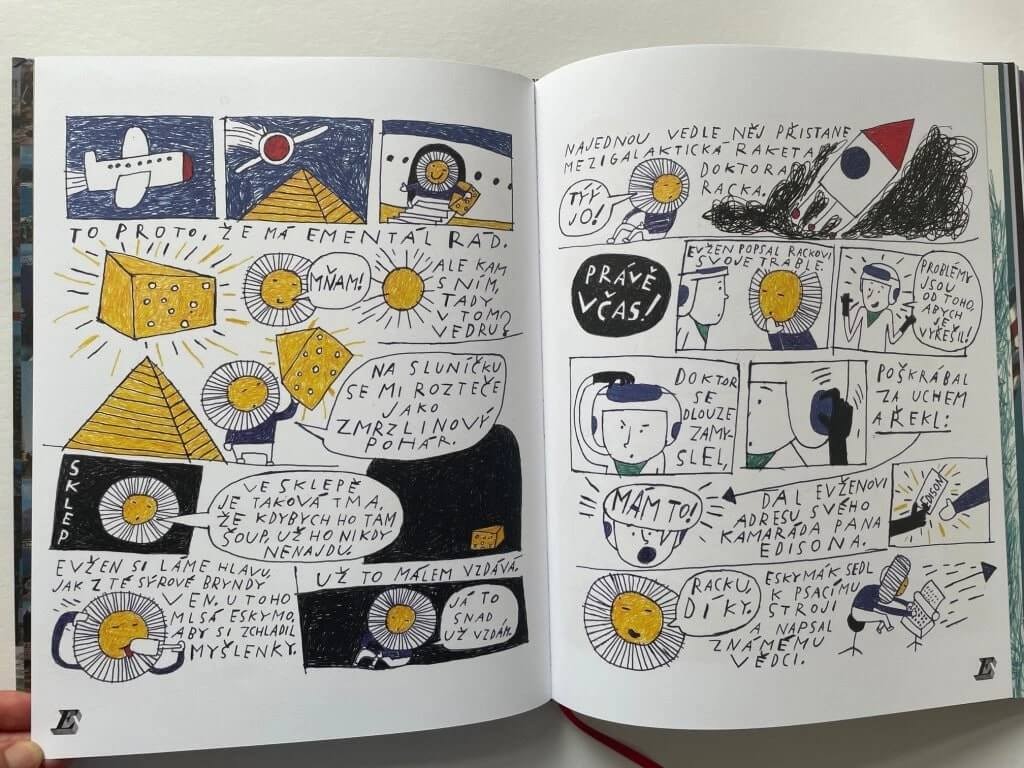 TO PROTO, ŽE MÁ EMENTÁL RÁD.
MŇAM!
ALE KAM
S NÍM,
TADY
V TOM
VEDRU?
NA SLUNÍČKU
SE MI ROZTEČE
JAKO
ZMRZLINOVÝ
POHÁR.
SKLEP
VE SKLEPĚ
JE TAKOVÁ TMA,
ŽE KDYBYCH HO TAM
ŠOUP, UŽ HO NIKDY
NENAJDU.
EVŽEN SI LÁME HLAVU,
JAK Z TÉ SÝROVÉ BRYNDY
VEN. U TOHO
MLSÁ ESKYMO,
ABY SI ZCHLADIL
MYŠLENKY.
UŽ TO MÁLEM VZDÁVÁ.
JÁ TO
SNAD
UŽ VZDÁM.
E
NAJEDNOU VEDLE NĚJ PŘISTANE
MEZIGALAKTICKÁ RAKETA
DOKTORA
RACKA.
TÝ JO!
PRÁVĚ
VČAS!
EVŽEN POPSAL RACKOVI
SVOJE TRABLE.
PROBLÉMY
JSOU
OD TOHO,
ABYCH
JE
VYŘEŠIL!
DOKTOR
SE
DLOUZE
ZAMY-
SLEL,
POŠKRÁBAL
ZA UCHEM
A ŘEKL:
MÁM TO!
DAL EVŽENOVI
ADRESU SVÉHO
KAMARÁDA PANA
EDISONA.
EDISON
RACKU,
DÍKY.
ESKYMÁK SEDL
K PSACÍMU
STROJI
A NAPSAL
ZNÁMÉMU
VĚDCI.
E